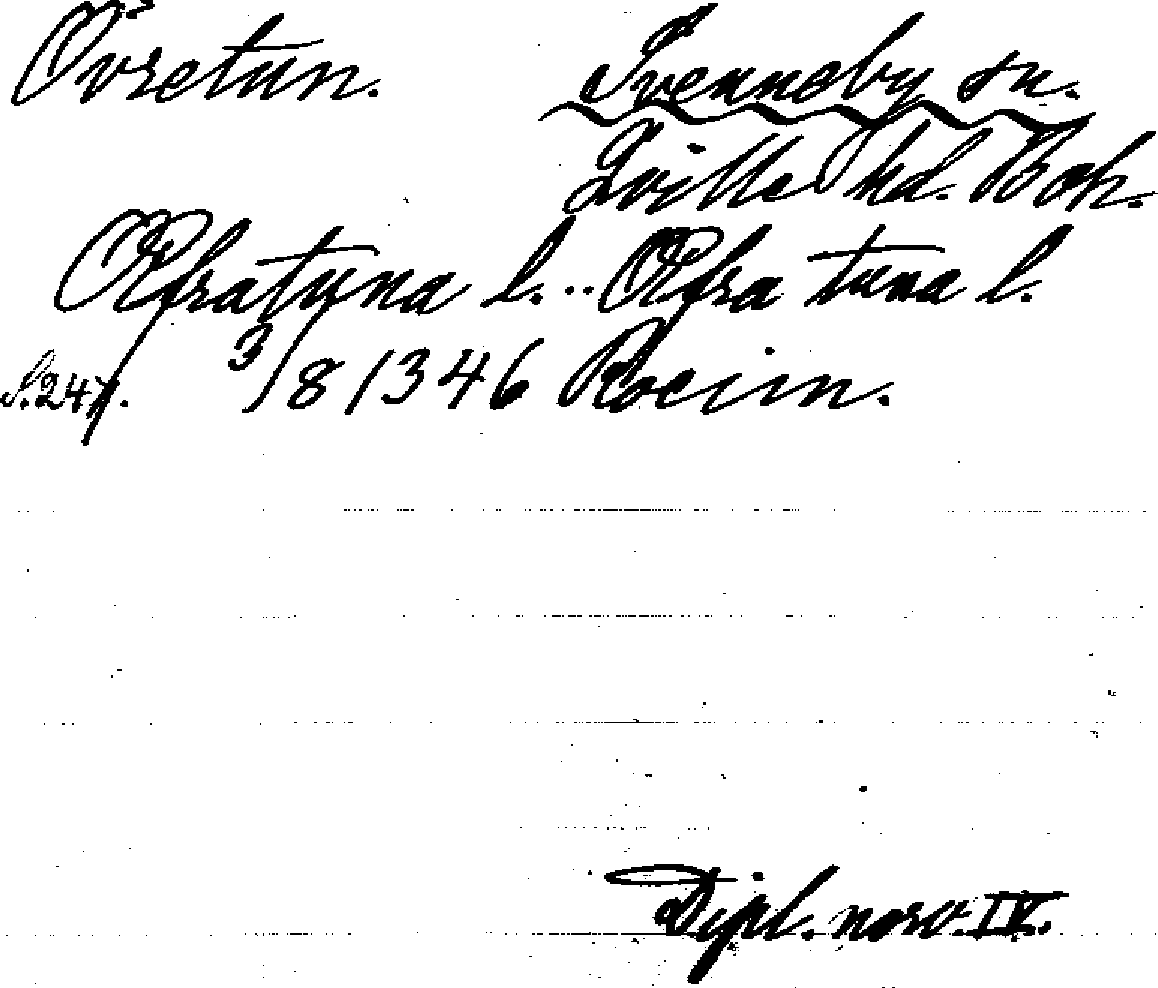 Övretun. Svenneby sn.
Qville hd. Boh.
Ofratuna l. .. Ofra tuna l.
S. 247. 3/8 1346 Rocim.
Dipl. norv. IV.